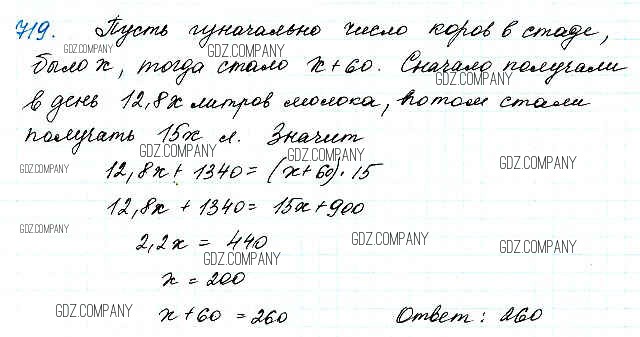 719. Пусть изначально число коров в стаде,
GDZ.COMPANY GDZ.COMPANY
было x, тогда стало x+60. Сначала получали
GDZ.COMPANY
в день 12,8x литров молока, потом стали
получать 15x л. Значит
GDZ.COMPANY GDZ.COMPANY
GDZ.COMPANY 12,8x + 1340 = (x+60)·15 GDZ.COMPANY
12,8x + 1340 = 15x+900
GDZ.COMPANY 2,2x = 440 GDZ.COMPANY GDZ.COMPANY
GDZ.COMPANY
x = 200
GDZ.COMPANY x+60 = 260 Ответ: 260